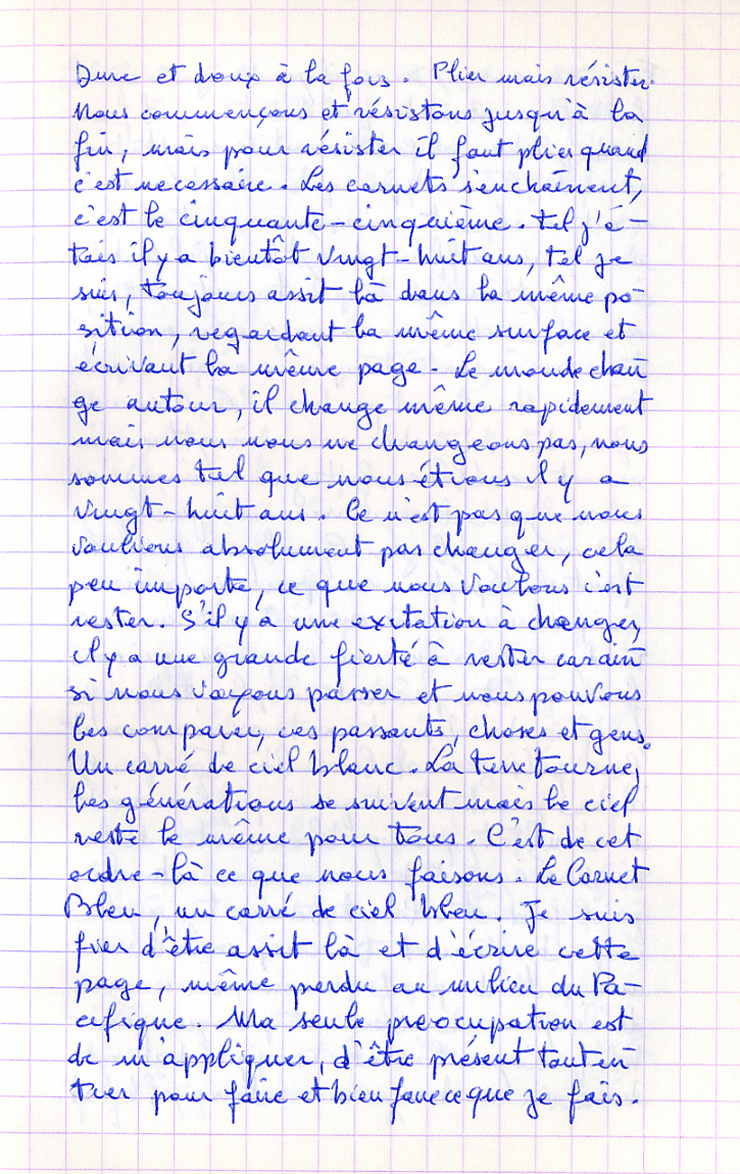 Dure et doux à la fois. Plier mais résister.
Nous commençons et résistons jusqu'à la
fin, mais pour résister il faut plier quand
c'est necessaire. Les carnets s'enchaînent,
c'est le cinquante-cinquième. Tel j'é-
tais il y a bientôt vingt-huit ans, tel je
suis, toujours assit là dans la même po-
sition, regardant la même surface et
écrivant la même page. Le monde chan
ge autour, il change même rapidement
mais nous nous ne changeons pas, nous
sommes tel que nous étions il y a
vingt-huit ans. Ce n'est pas que nous
voulions absolument pas changer, cela
peu importe, ce que nous voulons c'est
rester. S'il y a une exitation à changer,
il y a une grande fierté à rester car ain
si nous voyons passer et nous pouvons
les comparer, ces passants, choses et gens.
Un carré de ciel blanc. La terre tourne,
les générations se suivent mais le ciel
reste le même pour tous. C'est de cet
ordre-là ce que nous faisons. Le Carnet
Bleu, un carré de ciel bleu. Je suis
fier d'être assit là et d'écrire cette
page, même perdu au milieu du Pa-
cifique. Ma seule préocupation est
de m'appliquer, d'être présent tout en
tier pour faire et bien faire ce que je fais.